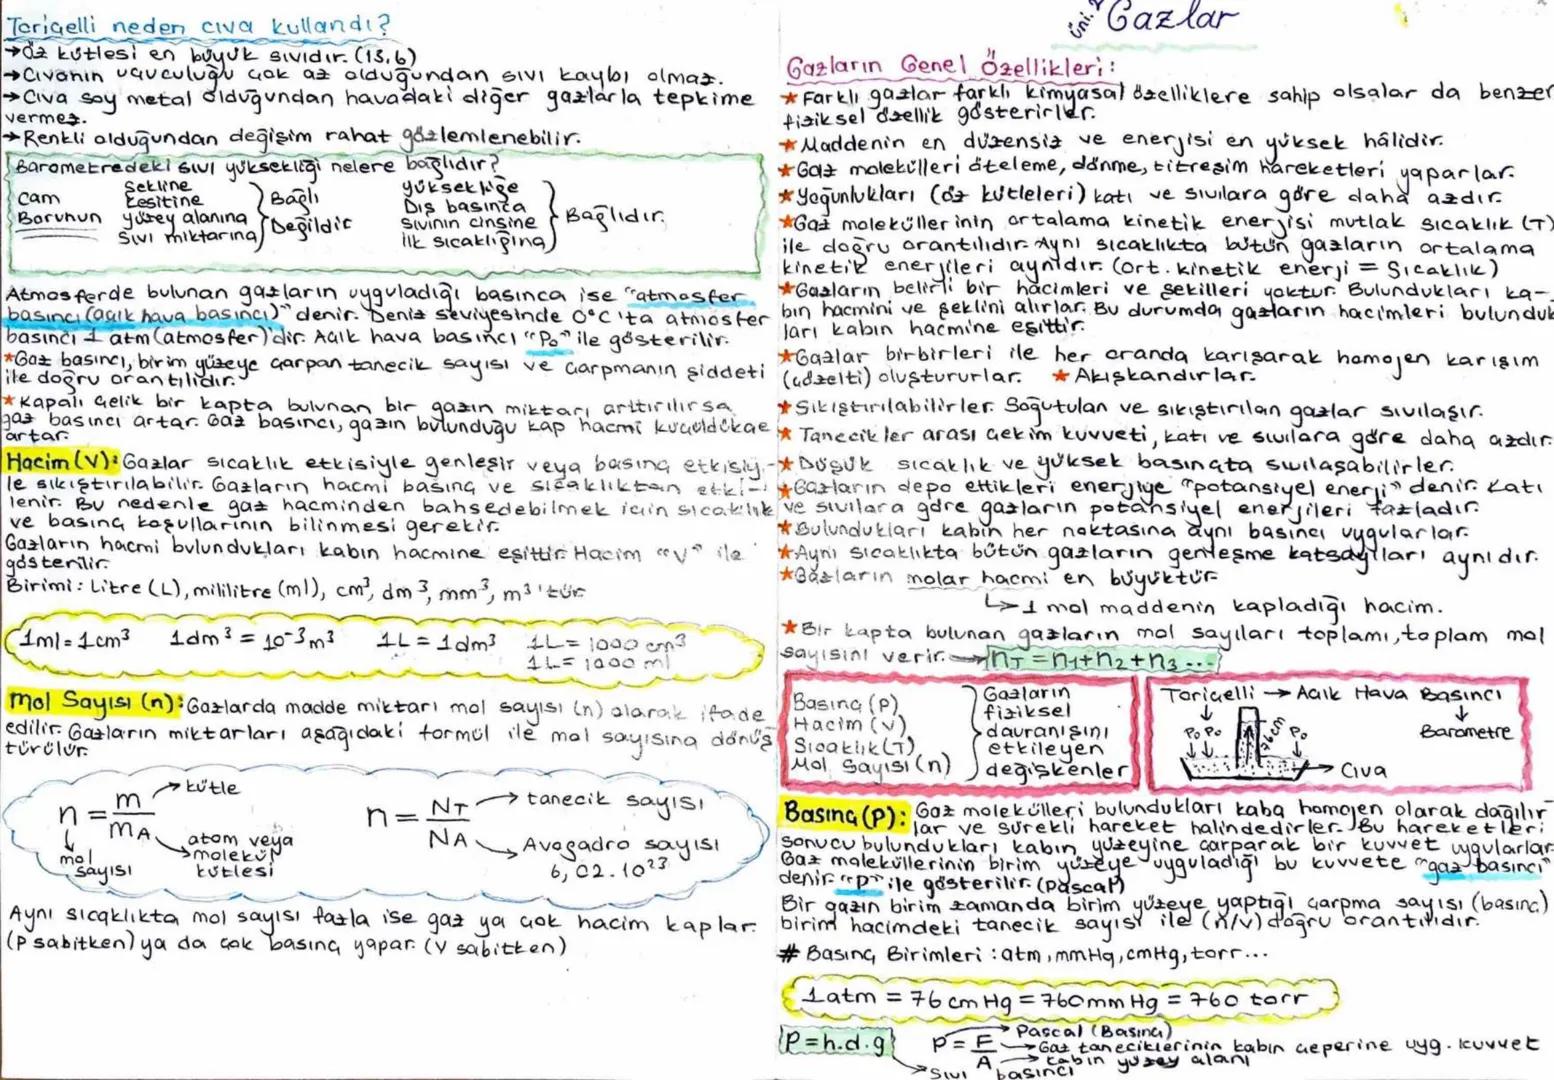 Toriçelli neden cıva kullandı?
→Öz kütlesi en büyük sıvıdır. (13,6)
→Cıvanın uçuculuğu çok az olduğundan sıvı kaybı olmaz.
→Cıva soy metal olduğundan havadaki diğer gazlarla tepkime
vermez.
→Renkli olduğundan değişim rahat gözlemlenebilir.
Barometredeki sıvı yüksekliği nelere bağlıdır?
Cam Borunun
Şekline
Kesitine
yüzey alanına
Sıvı miktarına
Bağlı
Değildir
yüksekliğe
Dış basınca
Sıvının cinsine
İlk sıcaklığına
Bağlıdır.
Atmosferde bulunan gazların uyguladığı basınca ise "atmosfer
basıncı (açık hava basıncı)" denir. Deniz seviyesinde 0°C'ta atmosfer
basıncı 1 atm (atmosfer)'dir. Açık hava basıncı "P₀" ile gösterilir.
★Gaz basıncı, birim yüzeye çarpan tanecik sayısı ve çarpmanın şiddeti
ile doğru orantılıdır.
★Kapalı çelik bir kapta bulunan bir gazın miktarı arttırılırsa
gaz basıncı artar. Gaz basıncı, gazın bulunduğu kap hacmi küçüldükçe
artar.
Hacim (V): Gazlar sıcaklık etkisiyle genleşir veya basınç etkisiy-
le sıkıştırılabilir. Gazların hacmi basınç ve sıcaklıktan etki-
lenir. Bu nedenle gaz hacminden bahsedebilmek için sıcaklık
ve basınç koşullarının bilinmesi gerekir.
Gazların hacmi bulundukları kabın hacmine eşittir. Hacim "V" ile
gösterilir.
Birimi: Litre (L), mililitre (ml), cm³, dm³, mm³, m³'tür
1ml = 1cm³ 1dm³ = 10⁻³m³ 1L = 1dm³ 1L = 1000 cm³
1L = 1000 ml
Mol Sayısı (n): Gazlarda madde miktarı mol sayısı (n) olarak ifade
edilir. Gazların miktarları aşağıdaki formül ile mol sayısına dönüş
türülür.
n = m/MA
→kütle
mol sayısı
atom veya
molekül
kütlesi
n = NT/NA
→tanecik sayısı
Avogadro sayısı
6,02.10²³
Aynı sıcaklıkta mol sayısı fazla ise gaz ya çok hacim kaplar.
(P sabitken) ya da çok basınç yapar. (V sabitken)
Gazlar
Gazların Genel Özellikleri:
★Farklı gazlar farklı kimyasal özelliklere sahip olsalar da benzer
fiziksel özellik gösterirler.
★Maddenin en düzensiz ve enerjisi en yüksek hâlidir.
★Gaz molekülleri öteleme, dönme, titreşim hareketleri yaparlar.
★Yoğunlukları (öz kütleleri) katı ve sıvılara göre daha azdır.
★Gaz moleküllerinin ortalama kinetik enerjisi mutlak sıcaklık (T)
ile doğru orantılıdır. Aynı sıcaklıkta bütün gazların ortalama
kinetik enerjileri aynıdır. (Ort. kinetik enerji = Sıcaklık)
★Gazların belirli bir hacimleri ve şekilleri yoktur. Bulundukları ka-
bın hacmini ve şeklini alırlar. Bu durumda gazların hacimleri bulunduk
ları kabın hacmine eşittir.
★Gazlar birbirleri ile her oranda karışarak homojen karışım
(çözelti) oluştururlar. ★Akışkandırlar.
★Sıkıştırılabilirler. Soğutulan ve sıkıştırılan gazlar sıvılaşır.
★Tanecikler arası çekim kuvveti, katı ve sıvılara göre daha azdır.
★Düşük sıcaklık ve yüksek basınçta sıvılaşabilirler.
★Gazların depo ettikleri enerjiye "potansiyel enerji" denir. Katı
ve sıvılara göre gazların potansiyel enerjileri fazladır.
★Bulundukları kabın her noktasına aynı basıncı uygularlar.
★Aynı sıcaklıkta bütün gazların genleşme katsayıları aynıdır.
★Gazların molar hacmi en büyüktür
↳1 mol maddenin kapladığı hacim.
★Bir kapta bulunan gazların mol sayıları toplamı, toplam mol
sayısını verir. → nT = n1+n2+n3...
Basınç (P)
Hacim (V)
Sıcaklık (T)
Mol Sayısı (n)
Gazların
fiziksel
davranışını
etkileyen
değişkenler
Toriçelli → Açık Hava Basıncı
Barometre
P₀ P₀ 76cm P₀
→Cıva
Basınç (P): Gaz molekülleri bulundukları kaba homojen olarak dağılır
lar ve sürekli hareket halindedirler. Bu hareketleri
sonucu bulundukları kabın yüzeyine çarparak bir kuvvet uygularlar.
Gaz moleküllerinin birim yüzeye uyguladığı bu kuvvete "gaz basıncı"
denir. "P" ile gösterilir. (pascal)
Bir gazın birim zamanda birim yüzeye yaptığı çarpma sayısı (basınç)
birim hacimdeki tanecik sayısı ile (n/v) doğru orantılıdır.
# Basınç Birimleri: atm, mmHg, cmHg, torr...
1atm = 76 cm Hg = 760mm Hg = 760 torr
P = h.d.g
→Sıvı basıncı
P = F/A
→Pascal (Basınç)
→Gaz taneciklerinin kabın çeperine uyg. kuvvet
→Kabın yüzey alanı